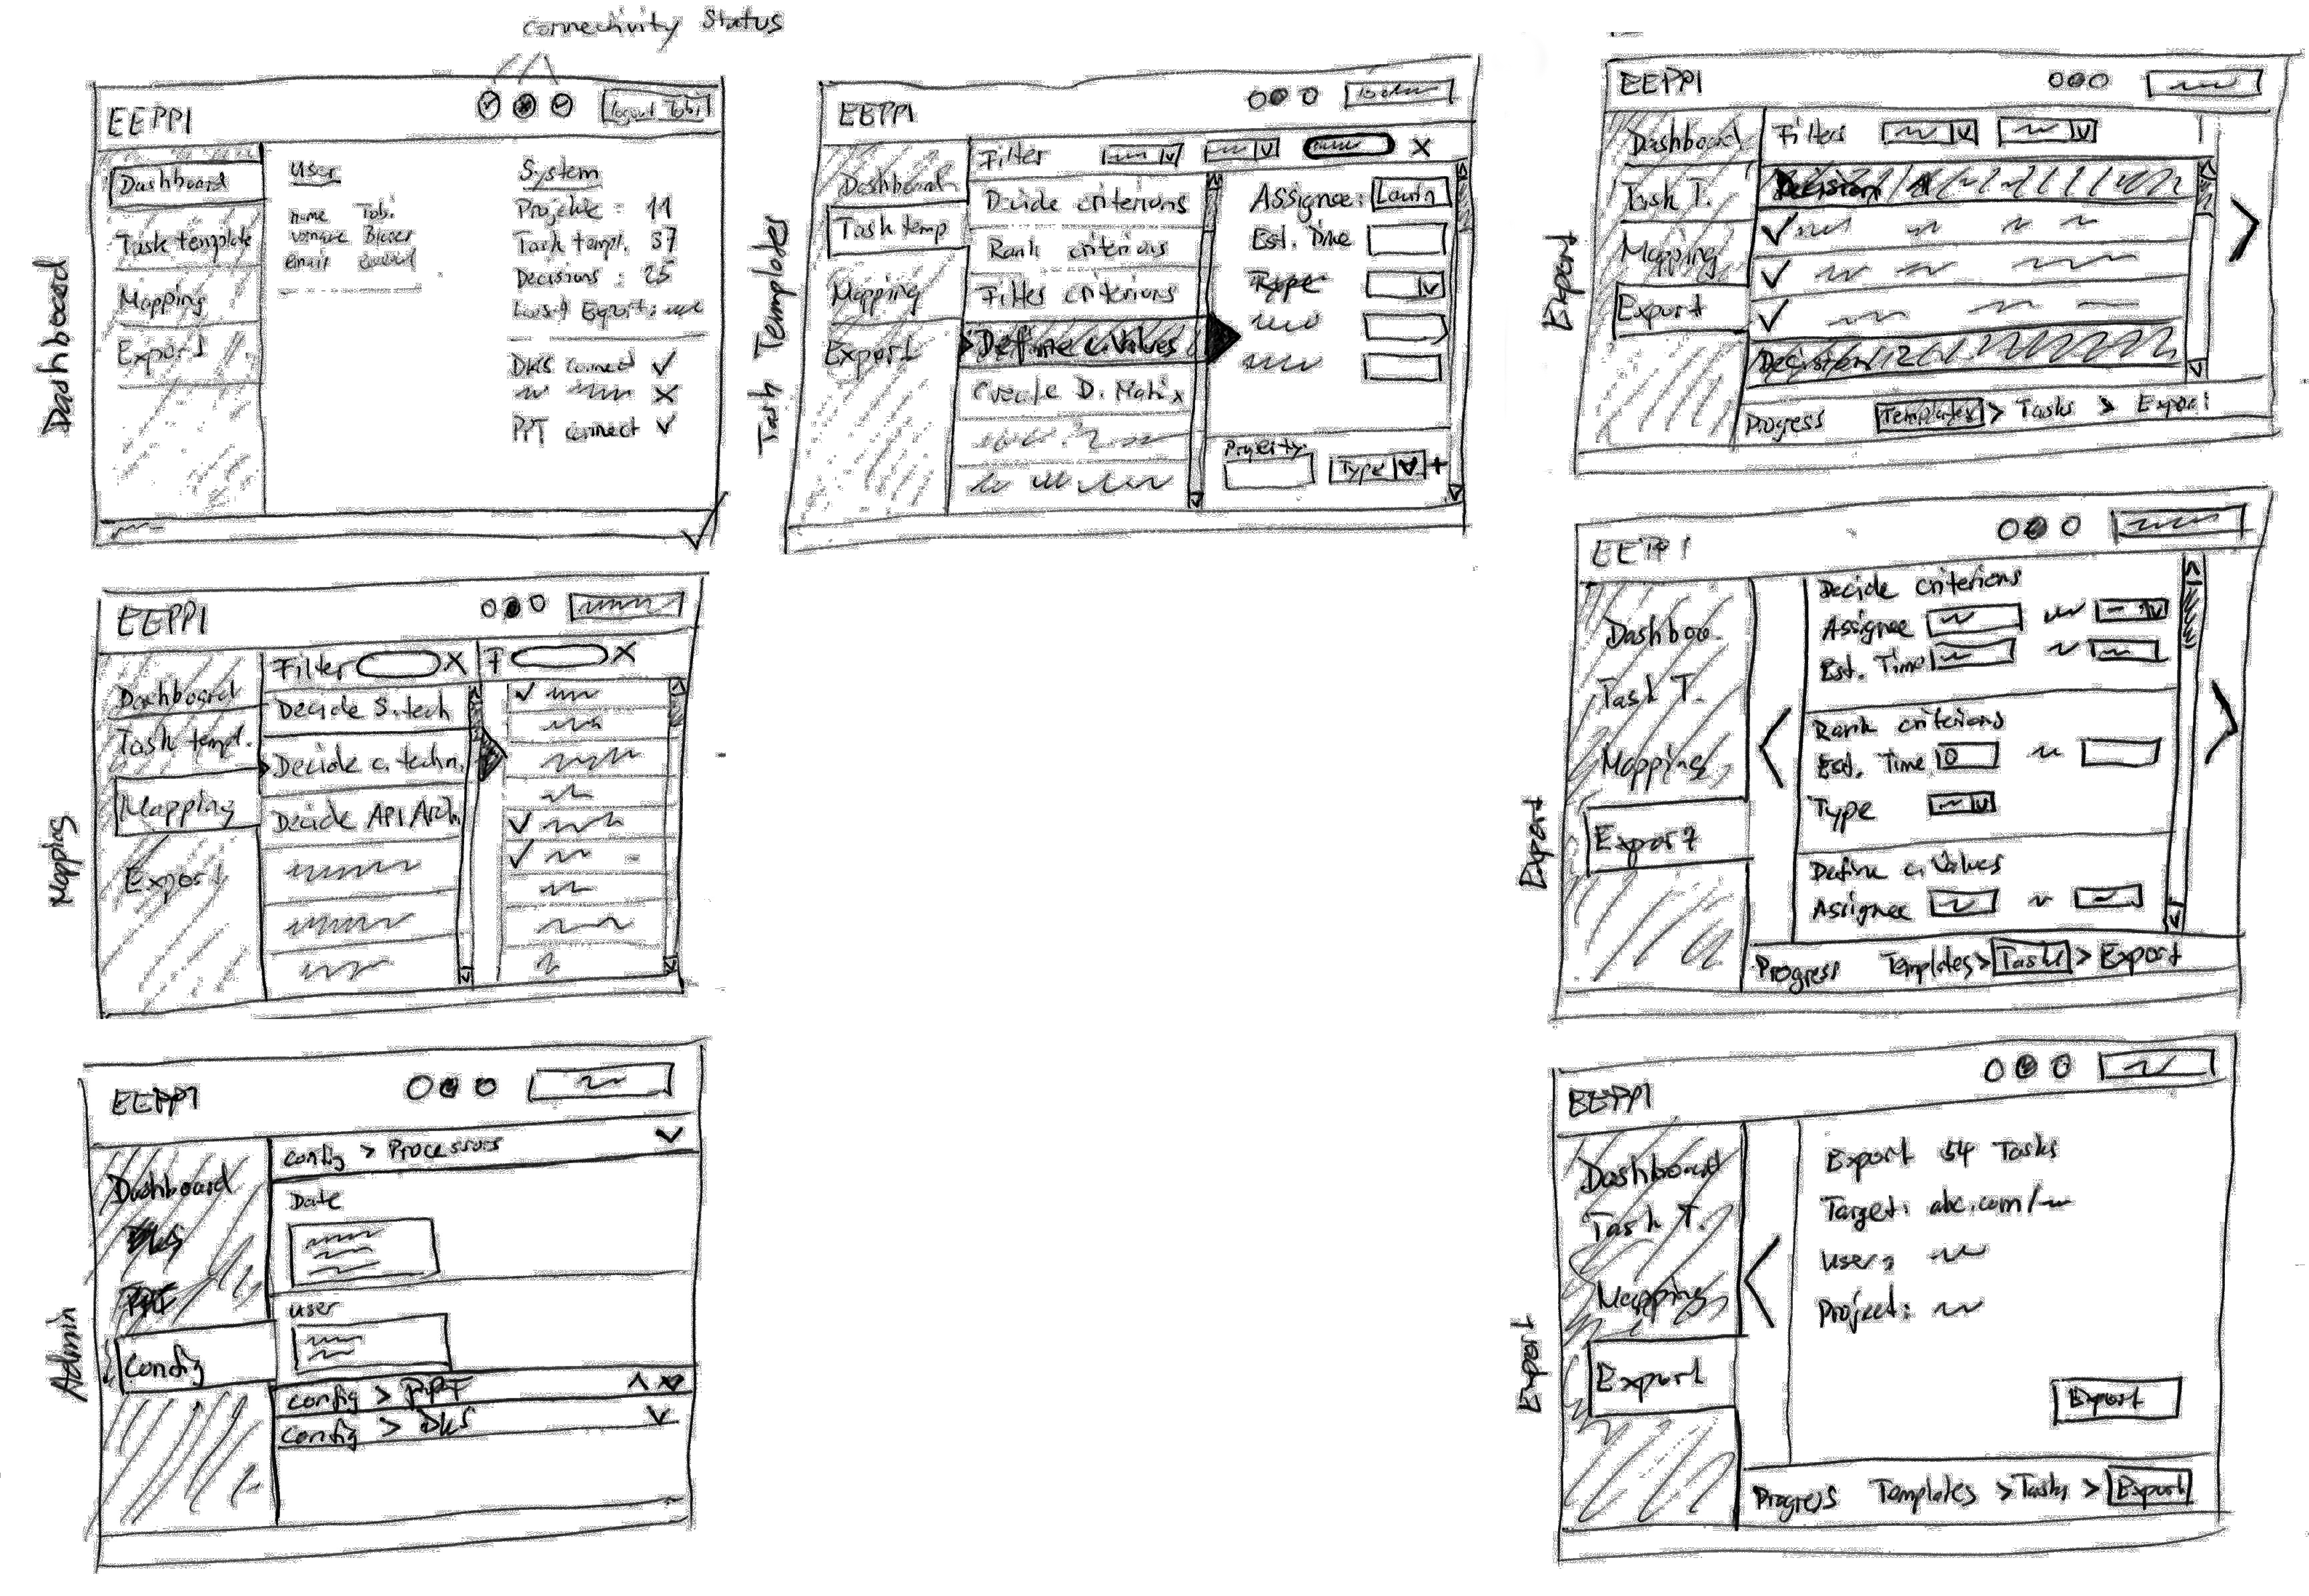 Connectivity Status
Dashboard
EEPPI
Logout Tobi
Dashboard
Task template
Mapping
Export
User
name Tobi
email
System
Projekte : 11
Task templ. 37
Decisions : 25
Last Export:
DKS connect
PPT connect
Task Templates
EEPPI
Dashboard
Task temp
Mapping
Export
Filter
Decide criterions
Rank criterions
Filter criterions
Define c. Values
Create D. Matrix
Assignee:
Est. Time
Type
Type
Export
EEPPI
Dashboard
Task T.
Mapping
Export
Filters
Decision 1
Decision 2
Progress Templates > Tasks > Export
Mapping
EEPPI
Dashboard
Task templ.
Mapping
Export
Filter X
F X
Decide S. tech
Decide c. techn.
Decide API Arch.
Export
EEPPI
Dashboo.
Task T.
Mapping
Export
Decide criterions
Assignee
Est. Time
Rank criterions
Est. Time 0
Type
Define c. Values
Assignee
Progress Templates > Tasks > Export
Admin
EEPPI
Dashboard
DKS
PPT
Config
config > Processors
Date
user
config > PPT
Config > DKS
Export
EEPPI
Dashboard
Task T.
Mapping
Export
Export 54 Tasks
Target: abc.com/
User:
Project:
Export
Progress Templates > Tasks > Export